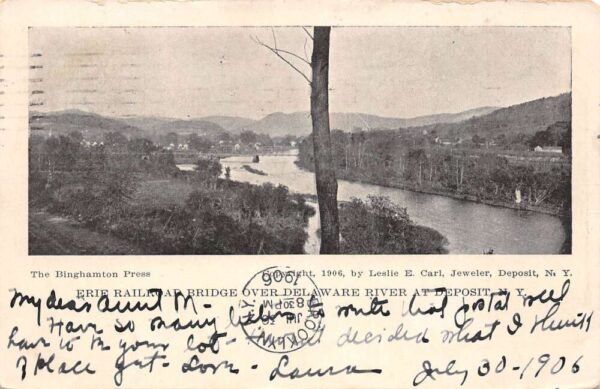 The Binghamton Press
Copyright, 1906, by Leslie E. Carl, Jeweler, Deposit, N. Y.
ERIE RAILROAD BRIDGE OVER DELAWARE RIVER AT DEPOSIT, N. Y.
1906
8 30 PM
N.Y.
My dear Aunt M-
write that postal will
Have so many
have to
your lot- decided what I think
of place yet- Love- Laura July 30-1906